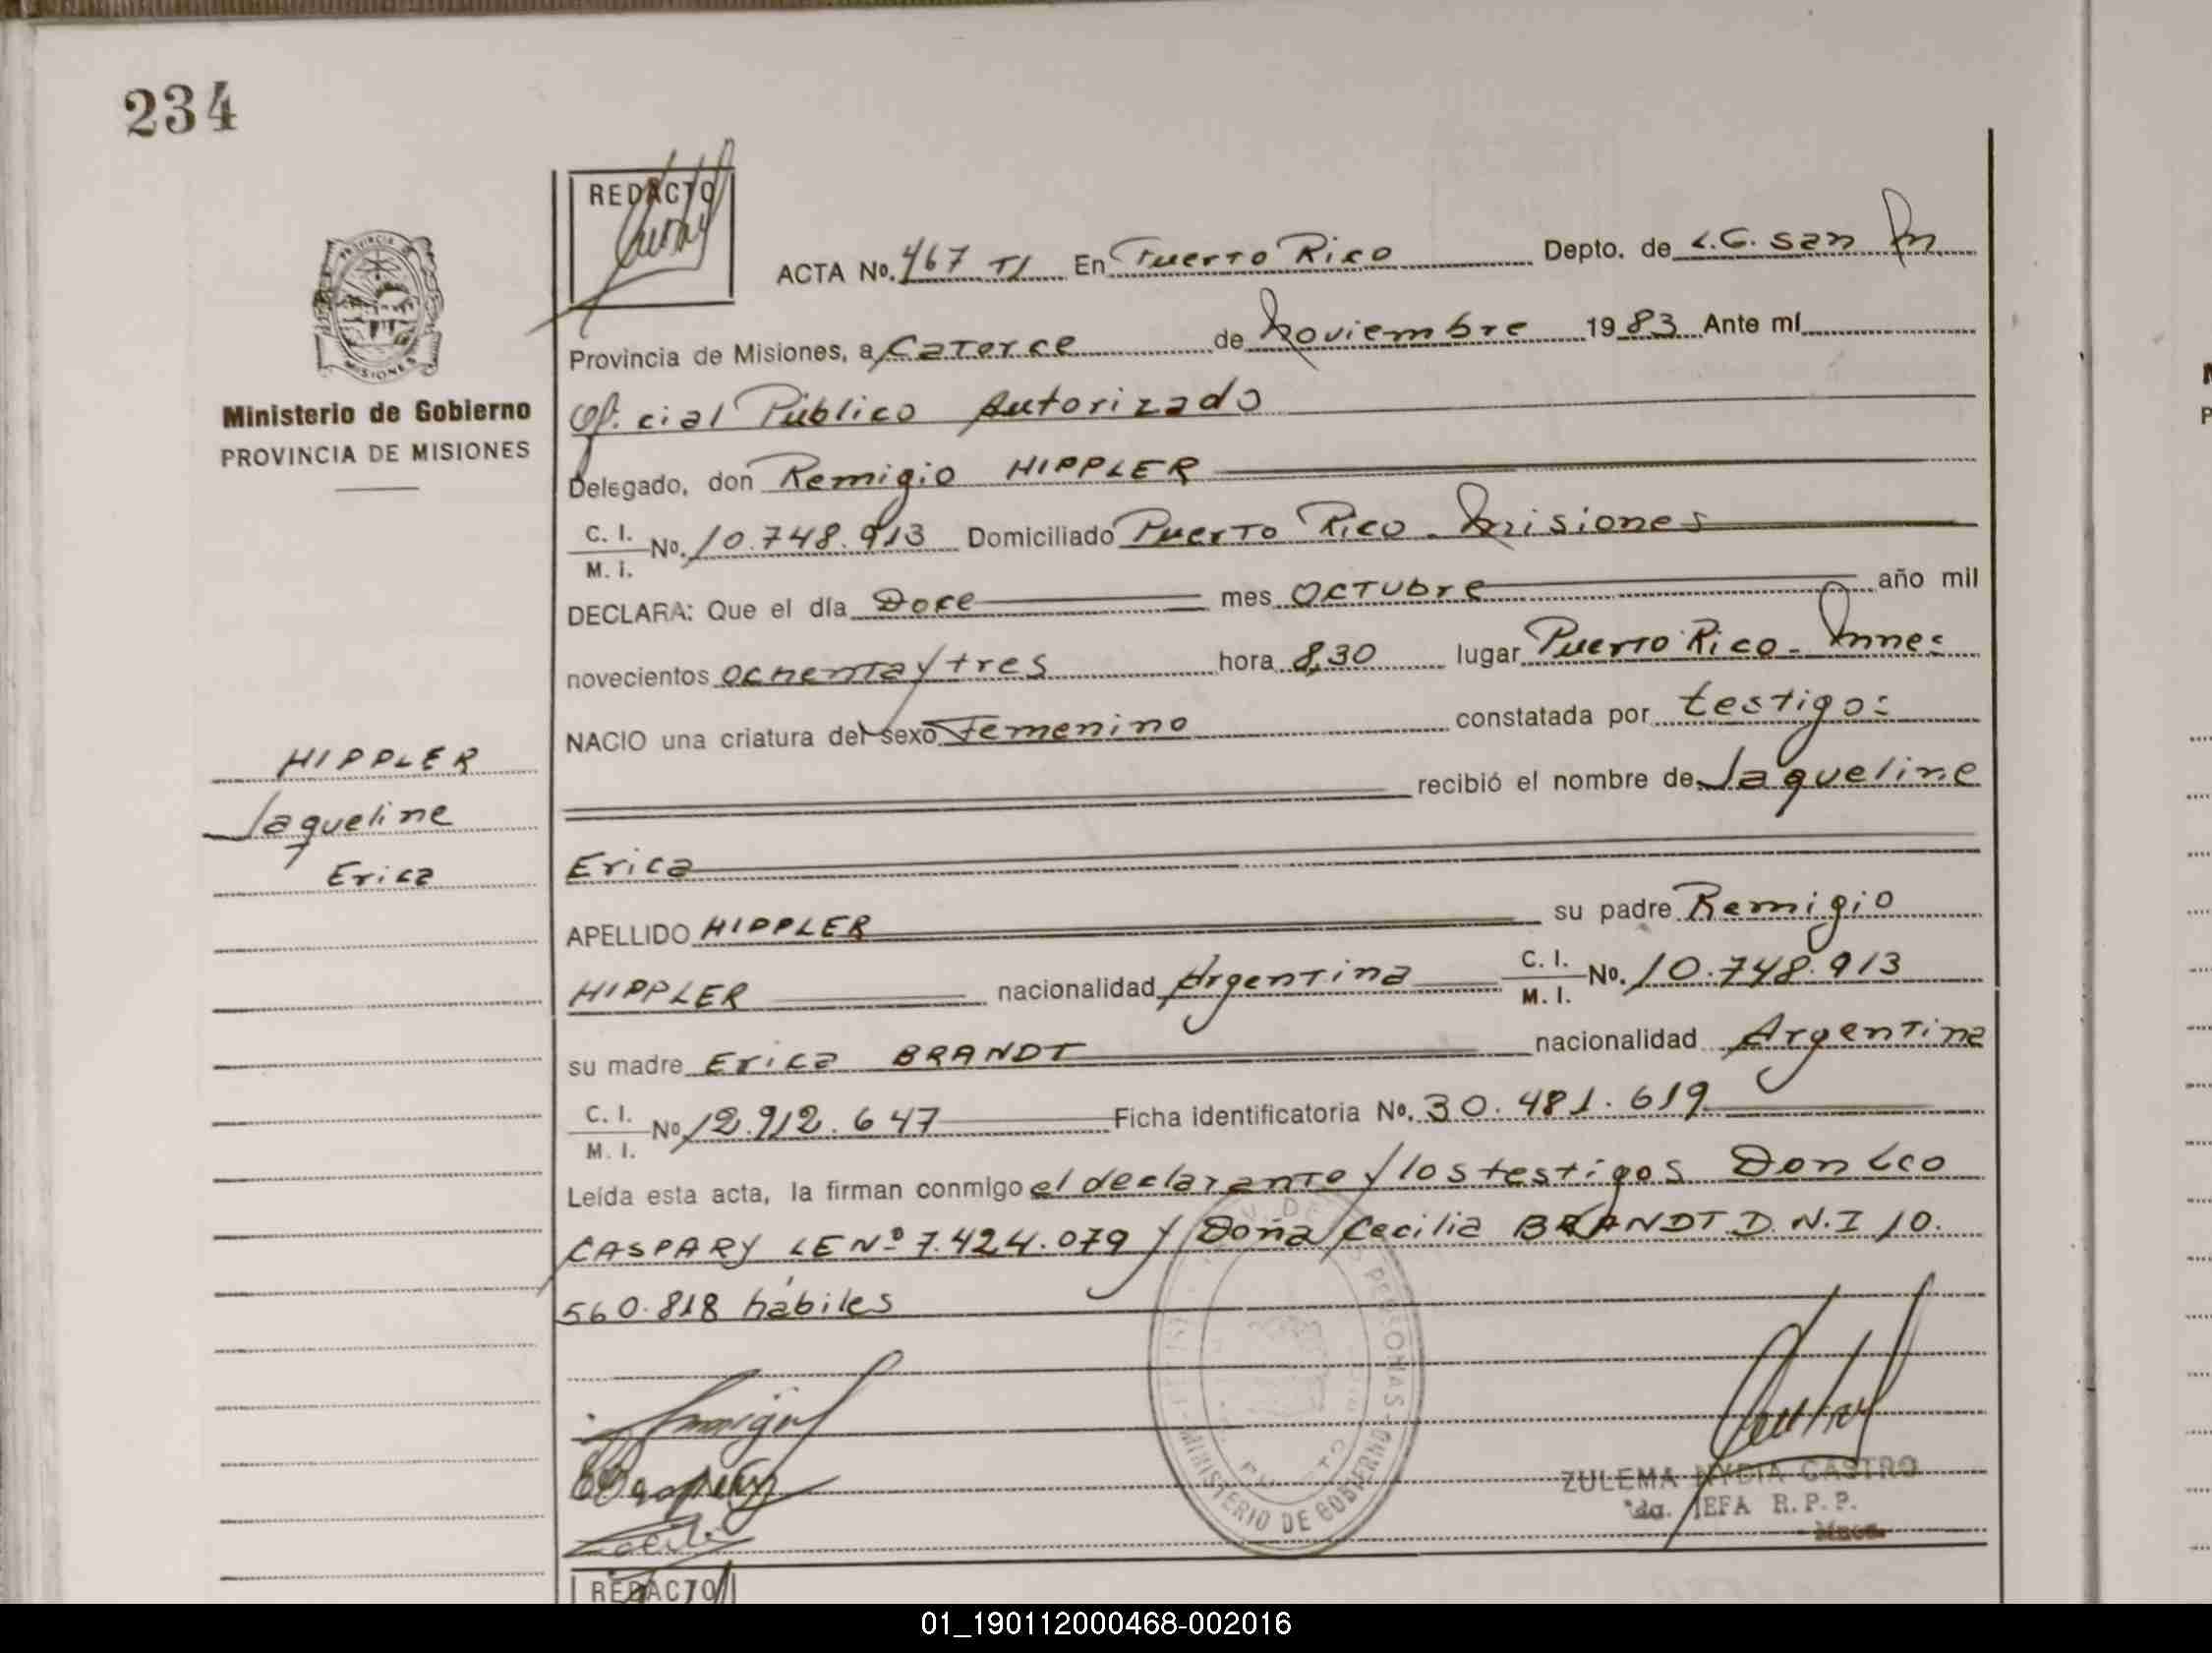 234
REDACTO
ACTA No. 467 TI En Puerto Rico Depto. de L.G. San M
Provincia de Misiones, a Catorce de Noviembre 1983 Ante mí
Oficial Público Autorizado
Ministerio de Gobierno
PROVINCIA DE MISIONES
Delegado, don Remigio HIPPLER
C. I.
M. I. No. 10.748.913 Domiciliado Puerto Rico - Misiones
DECLARA: Que el día Doce mes Octubre año mil
novecientos ochenta y tres hora 8,30 lugar Puerto Rico - Mnes
NACIO una criatura del sexo Femenino constatada por testigos
recibió el nombre de Jaqueline
Erica
HIPPLER
Jaqueline
Erica
APELLIDO HIPPLER su padre Remigio
HIPPLER nacionalidad Argentina C. I.
M. I. No. 10.748.913
su madre Erica BRANDT nacionalidad Argentina
C. I.
M. I. No. 12.912.647 Ficha identificatoria No. 30.481.619
Leída esta acta, la firman conmigo el declarante y los testigos Don Leo
CASPARY LE Nº 7.424.079 y Doña Cecilia BRANDT D.N.I 10.
560.818 hábiles
MINISTERIO DE GOBIERNO
ZULEMA NYDIA CASTRO
JEFA R.P.P.
REDACTO
01_190112000468-002016